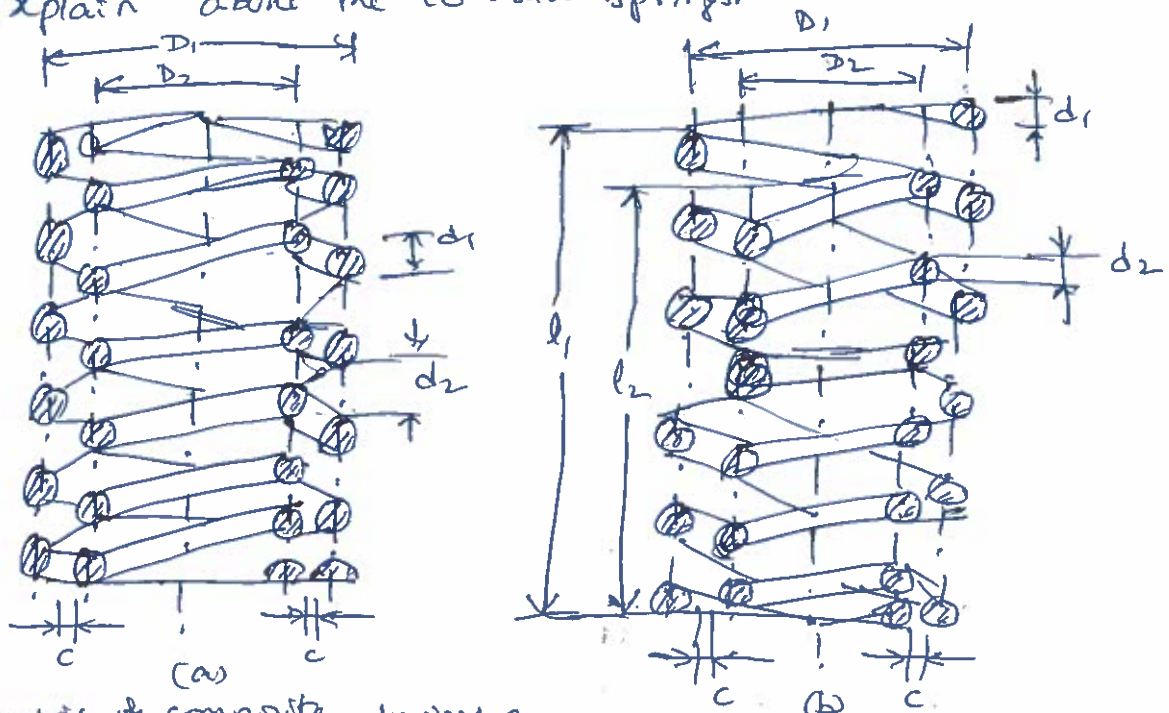 xplain about the co springs.
D1
D2
d1
d2
c
c
(a)
D1
D2
d1
d2
l1
l2
c
c
(b)
composite